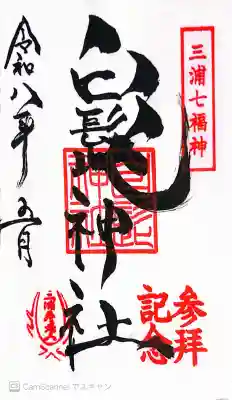 三浦七福神
白髭神社
参拝
記念
令和八年
五月
CamScanner でスキャン